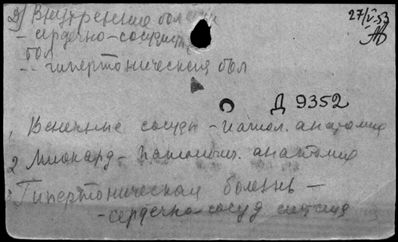 Внутренние болезни
27/V.53
- сердечно-сосудист
бол
-- гипертоническая бол
Д 9352
1, Венечные сосуды - патол. анатомия
2 Миокард - патологич. анатомия
3 Гипертоническая болезнь -
- сердечно-сосуд система